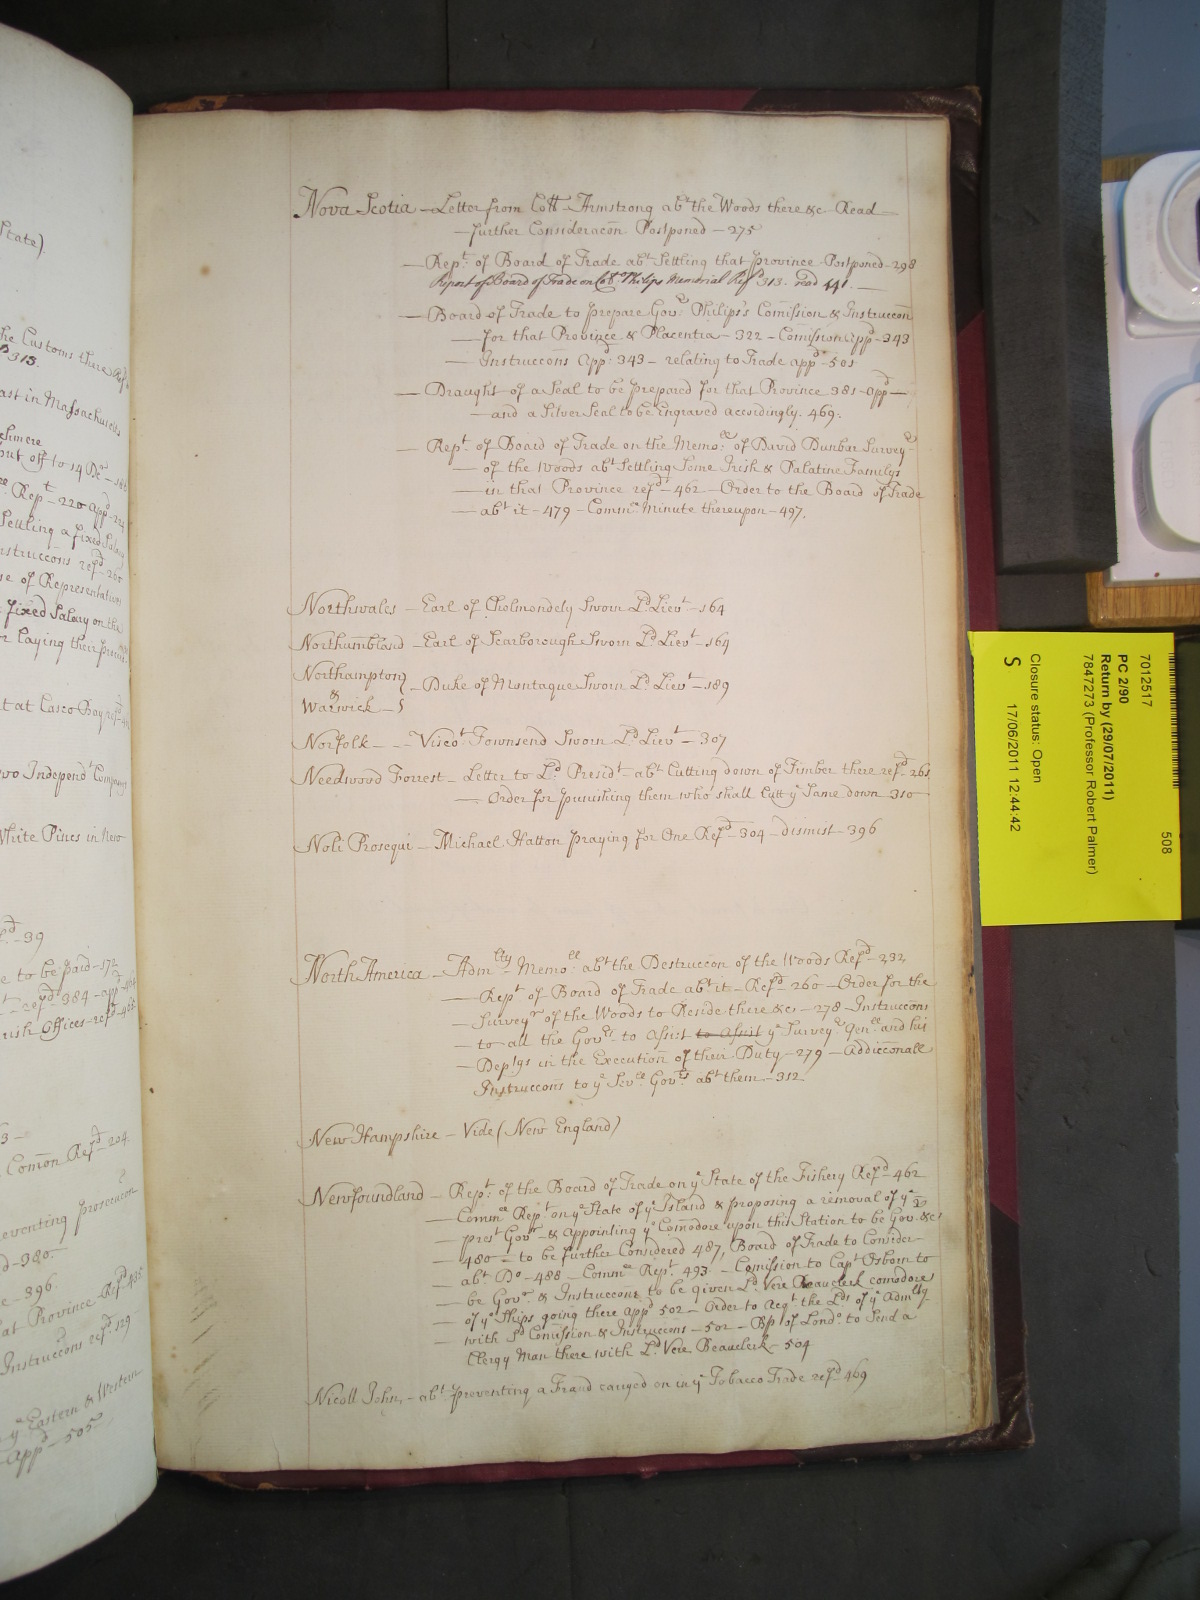 State).
the Customs there Refd
P 313.
ast in Massachusets
shmere
put off to 14 Do - 186
re. Rept - 220 appd - 224
Settling a fixed Salary
nstruccons refd 260
se of Representatives
fixed Salary on the
or laying their
t at Casco Bay refd
wo Independt Companys
White Pines in New
fd - 39
e to be paid - 172
refd 384 - appd
rish Offices - refd - 466
3 -
Comon Refd - 204
reventing prosecucon
d - 380 -
e - 396
at Province Refd 435
Instruccons refd 129
ye Eastern & Western
appd - 505
Nova Scotia - Letter from Coll Armstrong abt the Woods there &c Read -
- further Consideracon Postponed - 275
- Rept of Board of Trade abt Settling that Province Postponed - 298
Report of Board of Trade on Coll Philips Memorial Refd 313. read 441. -
- Board of Trade to prepare Govr Philips's Comission & Instruccon
- for that Province & Placentia - 322 - Comission appd - 343
- Instruccons appd 343 - relating to Trade appd - 501
- Draught of a Seal to be prepared for that Province 381 - appd -
- and a Silver Seal to be Engraved accordingly. 469.
- Rept of Board of Trade on the Memoll of David Dunbar Surveyr
- of the Woods abt Settling Some Irish & Palatine Familys
- in that Province refd - 462 - Order to the Board of Trade
- abt it - 479 - Comme Minute thereupon - 497.
Northwales - Earl of Cholmondely Sworn Ld Lievt - 164
Northumbland - Earl of Scarborough Sworn Ld Lievt - 164
Northampton
& - Duke of Montague Sworn Ld Lievt - 189
Warwick -
Norfolk - - - Viscot Townsend Sworn Ld Lievt - 307
Needwood Forrest - Letter to Ld Presidt - abt Cutting down of Timber there refd 261
- Order for punishing them who shall Cutt ye Same down 310
Noli Prosequi - Michael Hatton praying for One Refd - 304 - dismist - 396
North America - Admlty Memoll abt the Destruccon of the Woods Refd - 232
- Rept of Board of Trade abt it - Refd 260 - Order for the
- Surveyr of the Woods to Reside there &c - 278 - Instruccons
- to all the Govrs to Assist to Assist ye Surveyr Genll and his
- Deptys in the Execution of their Duty - 279 - Addicconall
Instruccons to ye Sevll Govrs abt them - 312
New Hampshire - Vide (New England)
Newfoundland - Rept of the Board of Trade on ye State of the Fishery Refd - 462
- Comme Rept on ye State of ye Island & proposing a removal of ye
- prest Govr & Appointing ye Comodore upon this Station to be Govr &c
- 480 - to be further Considered 487, Board of Trade to Consider
- abt Do - 488 - Comme Rept 493 - Comission to Capt Osborn to
- be Govr & Instruccons to be given Ld Vere Beauclerk comodore
- of ye Ships going there appd 502 - Order to Acqt the Lds of ye Admlty
- with sd Comission & Instruccons - 502 - Bp of Londo to Send a
Clergy Man there with Ld Vere Beauclerk - 504
Nicoll John, - abt preventing a Fraud carryed on in ye Tobacco Trade refd 469
7012517
508
PC 2/90
Return by (29/07/2011)
7847273 (Professor Robert Palmer)
Closure status: Open
S
17/06/2011 12:44:42